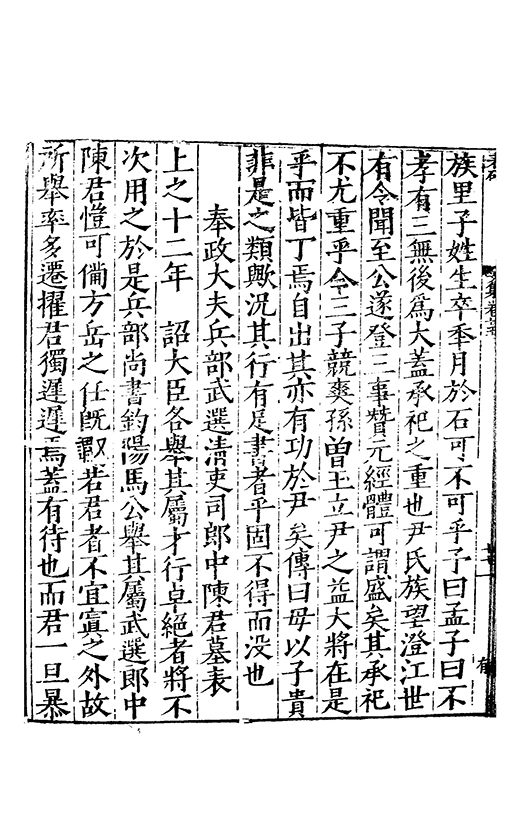 族里子姓生卒秊月於石可不可乎予曰孟子曰不
孝有三無後爲大蓋承祀之重也尹氏族望澄江世
有令聞至公遂登三事贊元經體可謂盛矣其承祀
不尤重乎今三子競爽孫曽玉立尹之益大將在是
乎而皆丁焉自出其亦有功於尹矣傳曰母以子貴
非是之類歟況其行有足書者乎固不得而没也
奉政大夫兵部武選清吏司郎中陳君墓表
上之十二年 詔大臣各舉其屬才行卓絕者將不
次用之於是兵部尚書鈞陽馬公舉其屬武選郎中
陳君愷可備方岳之任旣若君者不宜寘之外故
所舉率多遷擢君獨遲遲焉蓋有待也而君一旦暴